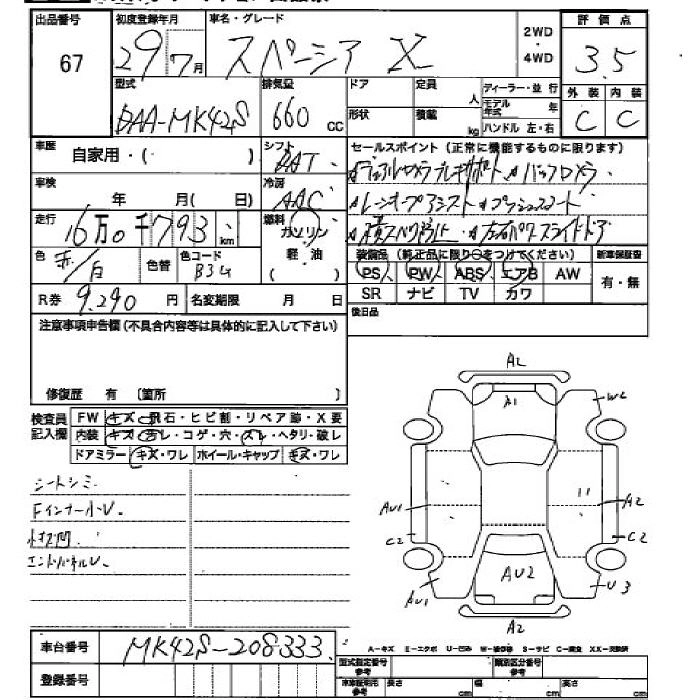 出品番号 初度登録年月 車名・グレード 2WD・4WD 評価点
67 29年7月 スペーシア X 3.5
型式 排気量 ドア 定員 人 ディーラー・並行 外装 内装
DAA-MK42S 660cc 形状 積載 kg モデル年式 年 ハンドル 左・右 C C
車歴 自家用・( ) シフト DAT セールスポイント(正常に機能するものに限ります)
車検 年 月( 日) 冷房 AAC デュアルカメラブレーキサポート バックカメラ
走行 16万0千793km 燃料 ガソリン レーンキープアシスト プッシュスタート
軽・油 横スベリ防止 左右パワースライドドア
色 赤/白 色替 色コード B3G ( ) 装備品(純正品に限り○をつけてください) 新車保証書
PS PW ABS エアB AW 有・無
R券 9,290円 名変期限 月 日 SR ナビ TV カワ
注意事項申告欄(不具合内容等は具体的に記入して下さい) 後日品
修復歴 有 〔箇所 〕
検査員記入欄 FW キズ・飛石・ヒビ割・リペア跡・X要
内装 キズ・汚レ・コゲ・穴・スレ・ヘタリ・破レ
ドアミラー キズ・ワレ ホイール・キャップ キズ・ワレ
シートシミ
Fインナー小U.
エンドパネルU.
A2
A1 W2
AU1 A2
C2 C2
AU1 AU2 U3
A2
車台番号 MK42S-208333
登録番号
A-キズ E-エクボ U-凹み W-補修跡 S-サビ C-腐食 XX-交換済
型式指定番号 参考 類別区分番号 参考
長さ cm 幅 cm 高さ cm